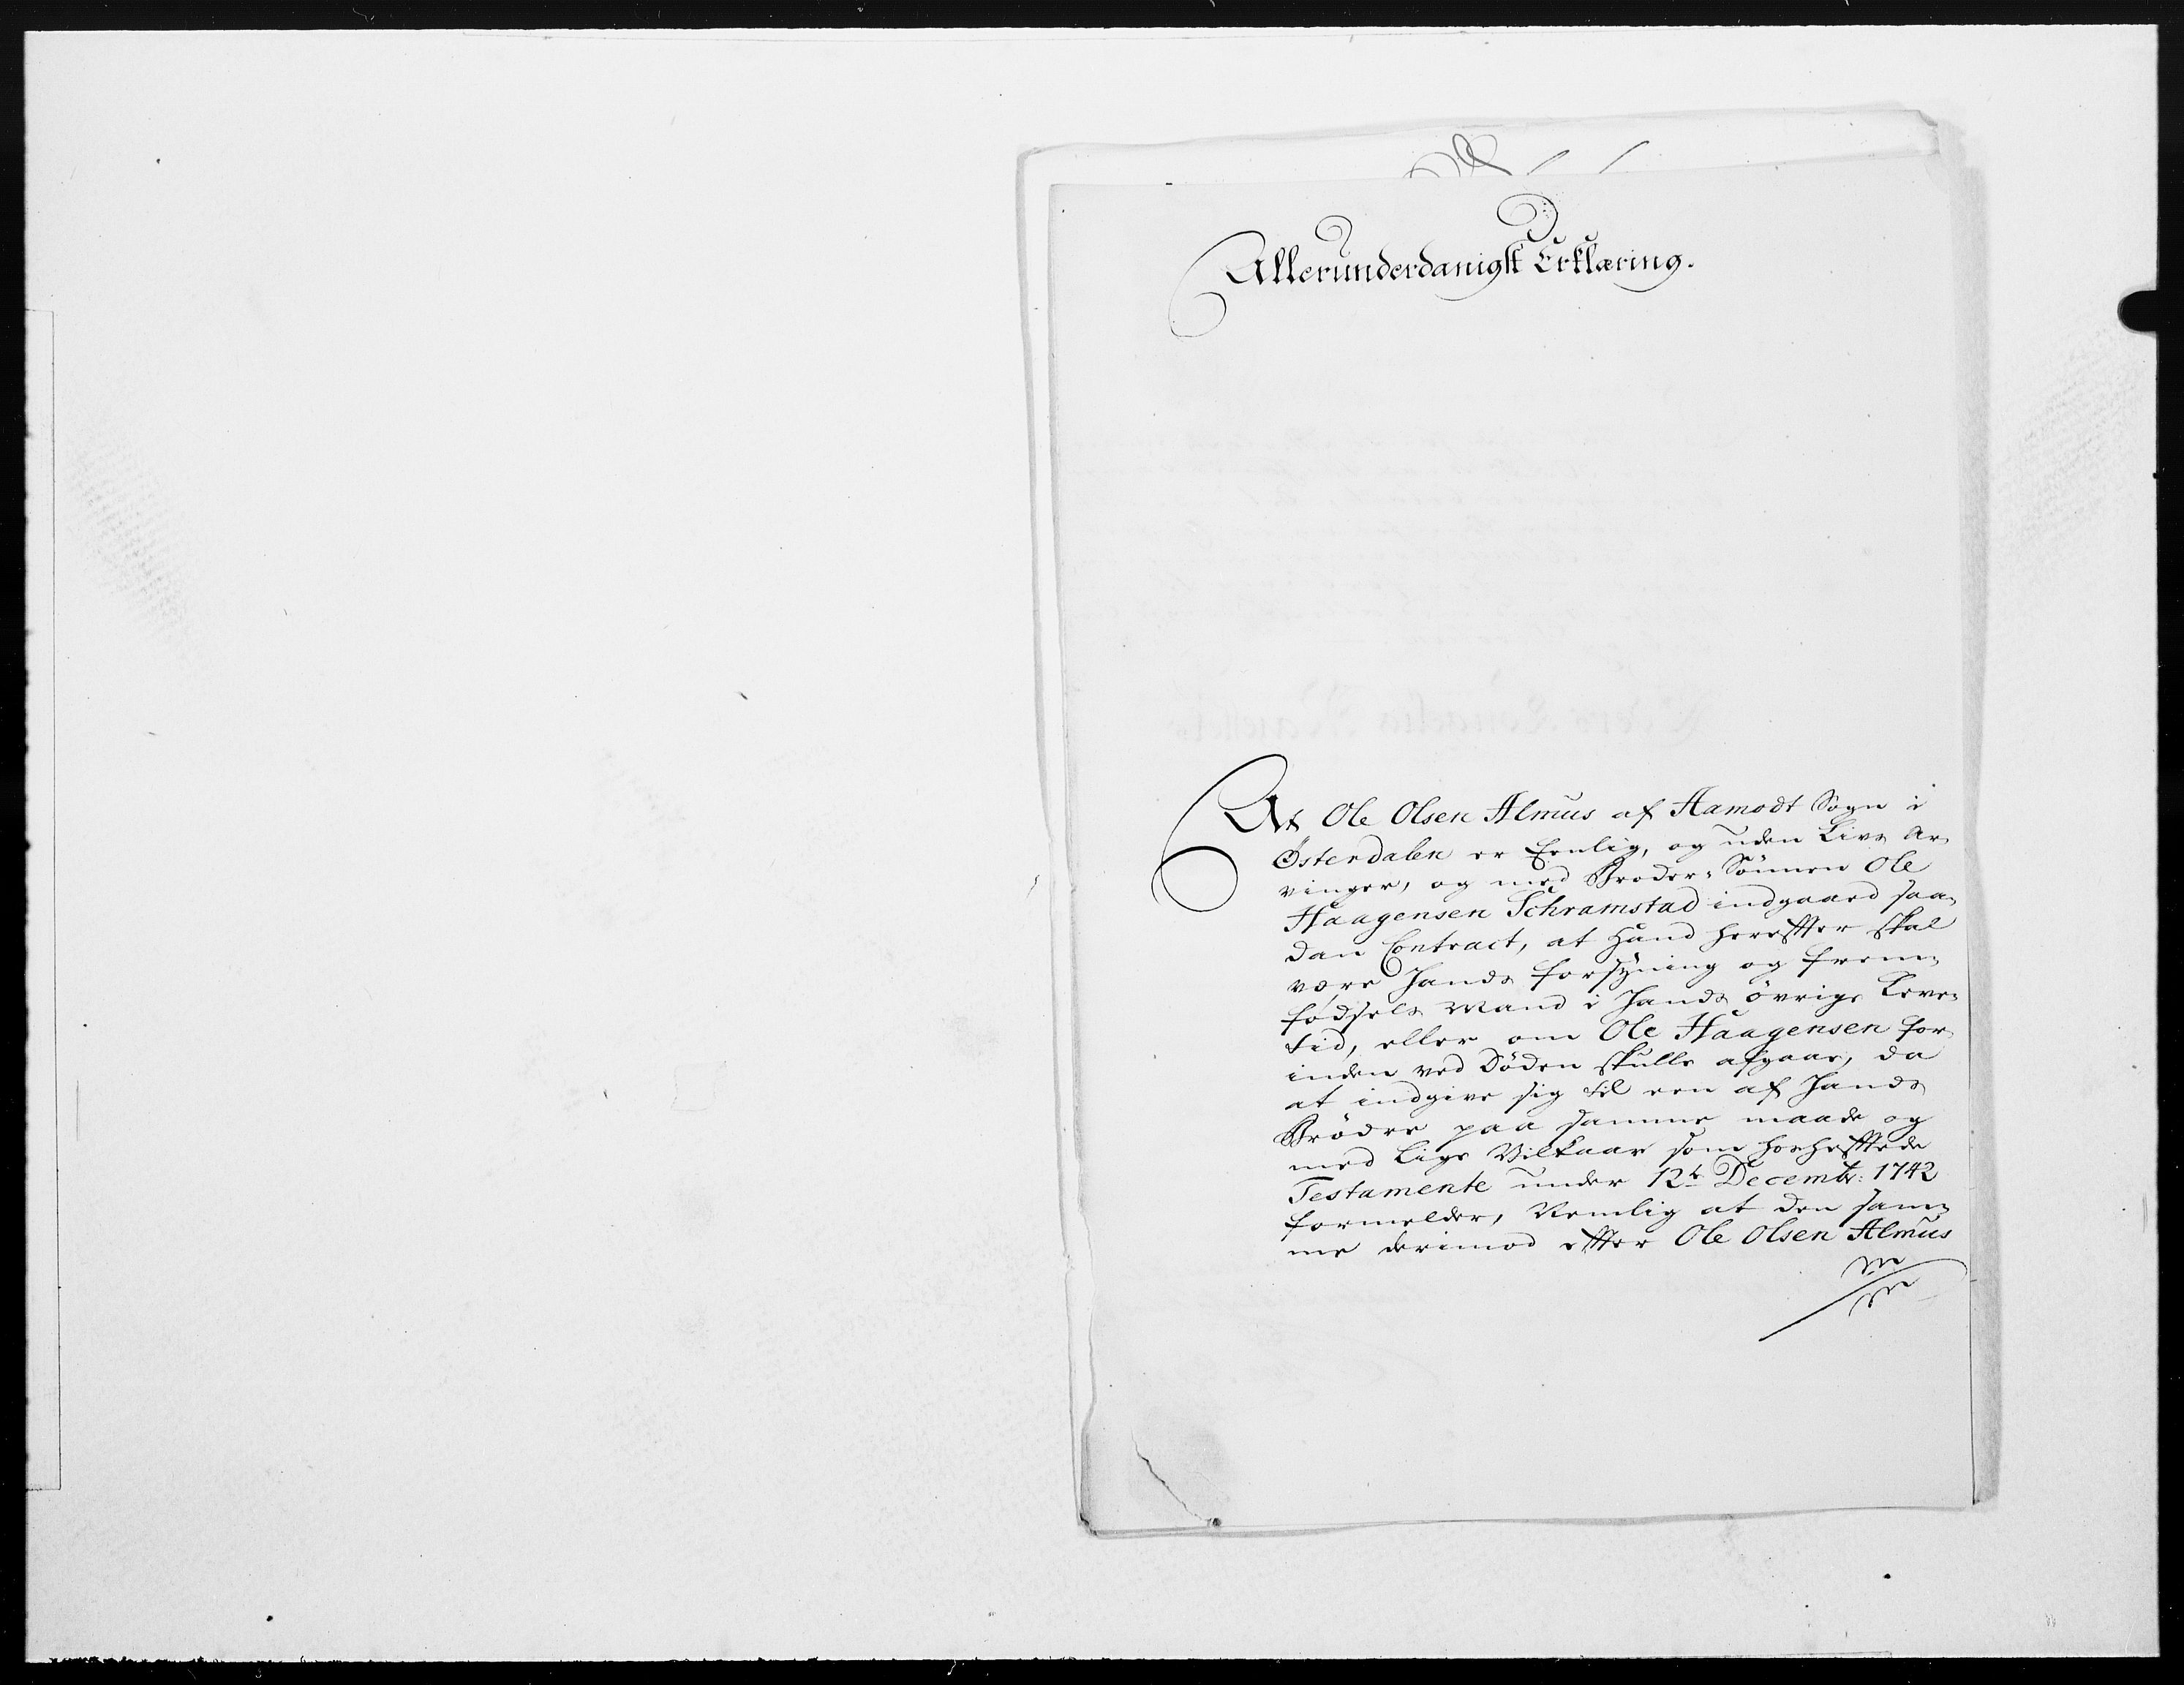 Allerunderdanigst Erklæring.
At Ole Olsen Almus af Aamodt Sogn i
Østerdalen er Eenlig, og uden Livs Ar-
vinger, og med Broder-Sönnen Ole
Haagensen Schramstad indgaaed saa-
dan Contract, at Hand hereffter skal
være hands forsyning og frem-
födsels Mand i hands övrige Leve-
tid, eller om Ole Haagensen for
inden ved Döden skulle afgaae, da
at indgive sig til een af hands
Brödre paa samme maade og
med lige Vilkaar som hoshefftede
Testamente under 12t Decembr: 1742
formelder, Nemlig at den sam-
me derimod effter Ole Olsen Almus